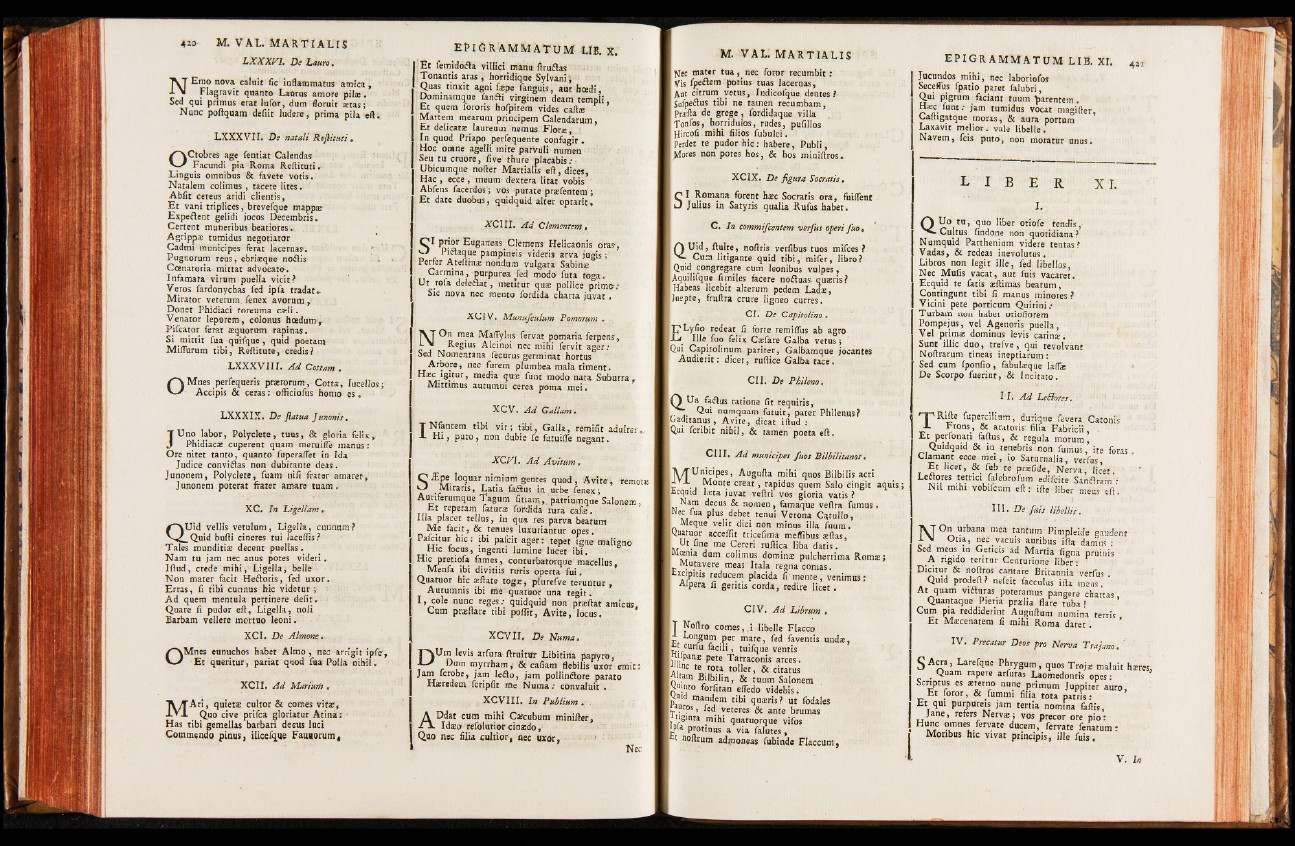 420 M. VAL. MARTIALIS
LXXXVI. De Lauro.
NEmo nova caluit sic inflammatus amica,
Flagravit quanto Laurus amore pilæ.
Sed qui primus erat lusor, dum floruit ætas;
Nunc postquam desiit ludere, prima pila est.
LXXXVII. De natali Restituti.
OCtobres age sentiat Calendas
Facundi pia Roma Restituti.
Linguis omnibus & favete votis.
Natalem colimus, tacete lites.
Absit cereus aridi clientis,
Et vani triplices, brevesque mappæ
Expectent gelidi jocos Decembris.
Certent muneribus beatiores.
Agrippæ tumidus negotiator
Cadmi municipes ferat lacernas.
Pugnorum reus, ebriæque noctis
Cœnatoria mittat advocato.
Infamata virum puella vicit?
Veros sardonychas sed ipsa tradat.
Mirator veterum senex avorum,
Donet Phidiaci toreuma cæli.
Venator leporem, colonus hœdum,
Piscator ferat æquorum rapinas.
Si mittit sua quisque, quid poetam
Missurum tibi, Restitute, credis?
LXXXVIII. Ad Cottam.
OMnes persequeris prætorum, Cotta, sacellos;
Accipis & ceras: officiosus homo es.
LXXXIX. De statua Junonis.
JUno labor, Polyclete, tuus, & gloria felix,
Phidiacæ cuperent quam meruisse manus:
Ore nitet tanto, quanto superasset in Ida
Judice convictas non dubitante deas.
Junonem, Polyclete, suam nisi frater amaret,
Junonem poterat frater amare tuam.
XC. In Ligellam.
QUid vellis vetulum, Ligella, cunnum?
Quid busti cineres tui lacessis?
Tales munditiæ decent puellas.
Nam tu jam nec anus potes videri.
Istud, crede mihi, Ligella, belle
Non mater facit Hectoris, sed uxor.
Erras, si tibi cunnus hic videtur;
Ad quem mentula pertinere desit.
Quare si pudor est, Ligella, noli
Barbam vellere mortuo leoni.
XCI. De Almone.
OMnes eunuchos habet Almo, nec arrigit ipse,
Et queritur, pariat quod sua Polla nihil.
XCII. Ad Marium.
MAri, quietæ cultor & comes vitæ,
Quo cive prisca gloriatur Atina:
Has tibi gemellas barbari decus luci
Commendo pinus, ilicesque Faunorum,
EPIGRAMMATUM LIB. X.
Et semidocta villici manu structas
Tonantis aras, horridique Sylvani,
Quas tinxit agni sæpe sanguis, aut hœdi,
Dominamque sancti virginem deam templi,
Et quem sororis hospitem vides castæ
Martem mearum principem Calendarum,
Et delicatæ laureum nemus Floræ,
In quod Priapo persequente confugit.
Hoc omne agelli mite parvuli numen
Seu tu cruore, sive thure placabis:
Ubicumque noster Martialis est, dices,
Hac, ecce, meum dextera litat vobis
Absens sacerdos; vos putate præsentem;
Et date duobus, quidquid alter optarit.
XCIII. Ad Clementem.
SI prior Euganeas Clemens Helicaonis oras,
Pictaque pampineis videris arva jugis;
Perfer Atestinæ nondum vulgata Sabinæ
Carmina, purpurea sed modo suta toga.
Ut rosa delectat, metitur quæ pollice primo:
Sic nova nec mento sordida charta juvat.
XCIV. Munusculum Pomorum.
NOn mea Massylus servat pomaria serpens,
Regius Alcinoi nec mihi servit ager:
Sed Nomentana securus germinat hortus
Arbore, nec furem plumbea mala timent.
Hæc igitur, media quæ sunt modo nata Suburra,
Mittimus autumni cerea poma mei.
XCV. Ad Gallam.
INfantem tibi vir; tibi, Galla, remisit adulter.
Hi, puto, non dubie se futuisse negant.
XCVI. Ad Avitum.
SÆpe loquar nimium gentes quod, Avite, remotas
Miraris, Latia factus in urbe senex;
Auriferumque Tagum sitiam, patriumque Salonem,
Et repetam saturæ sordida rura casæ.
Illa placet tellus, in qua res parva beatum
Me facit, & tenues luxuriantur opes.
Pascitur hic: ibi pascit ager: tepet igne maligno
Hic focus, ingenti lumine lucet ibi.
Hic pretiosa fames, conturbatorque macellus,
Mensa ibi divitiis ruris operta sui.
Quatuor hic æstate togæ, pluresve teruntur,
Autumnis ibi me quatuor una tegit.
I, cole nunc reges: quidquid non præstat amicus,
Cum præstare tibi possit, Avite, locus.
XCVII. De Numa.
DUm levis arsura struitur Libitina papyro,
Dum myrrham, & casiam flebilis uxor emit:
Jam scrobe, jam lecto, jam pollinctore parato
Hæredem scripsit me Numa: convaluit.
XCVIII. In Publium.
ADdat cum mihi Cæcubum minister,
Idæo resolutior cinædo,
Quo nec filia cultior, nec uxor,
Nec
M. VAL. MARTIALIS
Nec mater tua, nec soror recumbit:
Vis spectem potius tuas lacernas,
Aut citrum vetus, Indicosque dentes?
Suspectus tibi ne tamen recumbam,
Præsta de grege, sordidaque villa
Tonsos, horridulos, rudes, pusillos
Hircosi mihi filios subulci.
Perdet te pudor hic: habere, Publi,
Mores non potes hos, & hos ministros.
XCIX. De figura Socratis.
SI Romana forent hæc Socratis ora, fuissent
Julius in Satyris qualia Rufus habet.
C. In commiscentem versus operi suo.
QUid, stulte, nostris versibus tuos misces?
Cum litigante quid tibi, miser, libro?
Quid congregare cum leonibus vulpes,
Aquilisque similes facere noctuas quæris?
Habeas licebit alterum pedem Ladæ,
Inepte, frustra crure ligneo curres.
CI. De Capitolino.
ELysio redeat si forte remissus ab agro
Ille suo felix Cæsare Galba vetus;
Qui Capitolinum pariter, Galbamque jocantes
Audierit: dicet, rustice Galba tace.
CII. De Phileno.
QUa factus ratione sit requiris,
Qui numquam futuit, pater Philenus?
Gaditanus, Avite, dicat istud:
Qui scribit nihil, & tamen poeta est.
CIII. Ad municipes suos Bilbilitanos.
MUnicipes, Augusta mihi quos Bilbilis acri
Monte creat, rapidus quem Salo cingit aquis;
Ecquid læta juvat vestri vos gloria vatis?
Nam decus & nomen, famaque vestra sumus.
Nec sua plus debet tenui Verona Catullo,
Meque velit dici non minus illa suum.
Quatuor accessit tricesima messibus æstas,
Ut sine me Cereri rustica liba datis.
Mœnia dum colimus dominæ pulcherrima Romæ;
Mutavere meas Itala regna comas.
Excipitis reducem placida si mente, venimus:
Aspera si geritis corda, redire licet.
CIV. Ad Librum.
I Nostro comes, i libelle Flacco
Longum per mare, sed faventis undæ,
Et cursu facili, tuisque ventis
Hispanæ pete Tarraconis arces.
Illinc te rota toller, & citatus
Altam Bilbilin, & tuum Salonem
Quinto forsitan essedo videbis.
Quid mandem tibi quæris? ut sodales
Pauros, sed veteres & ante brumas
Triginta mihi quatuorque visos
Ipsa protinus a via salutes,
Et nostrum admoneas subinde Flaccum,
EPIGRAMMATUM LIB. XI. 421
Jucundos mihi, nec laboriosos
Secessus spatio paret salubri,
Qui pigrum faciant tuum parentem.
Hæc sunt: jam tumidus vocat magister,
Castigatque moras, & aura portum
Laxavit melior. vale libelle.
Navem, scis puto, non moratur unus.
LIBER XI.
I.
QUo tu, quo liber otiose tendis,
Cultus sindone non quotidiana?
Numquid Parthenium videre tentas?
Vadas, & redeas inevolutus.
Libros non legit ille, sed libellos,
Nec Musis vacat, aut suis vacaret.
Ecquid te satis æstimas beatum,
Contingunt tibi si manus minores?
Vicini pete porticum Quirini:
Turbam non habet otiosiorem
Pompejus, vel Agenoris puella,
Vel primæ dominus levis carinæ.
Sunt illic duo, tresve, qui revolvant
Nostrarum tineas ineptiarum:
Sed cum sponsio, fabulæque lassæ
De Scorpo fuerint, & Incitato.
II. Ad Lectores.
TRiste supercilium, durique severa Catonis
Frons, & aratoris filia Fabricii,
Et personati fastus, & regula morum,
Quidquid & in tenebris non sumus, ite foras.
Clamant ecce mei, io Saturnalia, versus,
Et licet, & sub te præside, Nerva, licet.
Lectores tetrici salebrosum ediscite Sanctram:
Nil mihi vobiscum est: iste liber meus est.
III. De suis libellis.
NOn urbana mea tantum Pimpleide gaudent
Otia, nec vacuis auribus ista damus:
Sed meus in Geticis ad Martia signa pruinis
A rigido teritur Centurione liber:
Dicitur & nostros cantare Britannia versus.
Quid prodest? nescit sacculus ista meus.
At quam victuras poteramus pangere chartas,
Quantaque Pieria prælia flare tuba!
Cum pia reddiderint Augustum numina terris,
Et Mæcenatem si mihi Roma daret.
IV. Precatur Deos pro Nerva Trajano.
SAcra, Laresque Phrygum, quos Trojæ maluit hæres,
Quam rapere arsuras Laomedontis opes:
Scriptus es æterno nunc primum Juppiter auro,
Et soror, & summi filia tota patris:
Et qui purpureis jam tertia nomina fastis,
Jane, refers Nervæ; vos precor ore pio:
Hunc omnes servate ducem, servate senatum:
Moribus hic vivat principis, ille suis.
V. In